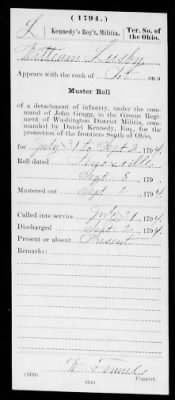 (1794.)
L | Kennedy's Reg't, Militia. | Ter. So. of the Ohio.
William
Appears with the rank of Pvt. on a
Muster Roll
of a detachment of infantry, under the command
of John Gragg, in the Greene Regiment
of Washington District Militia, commanded
by Daniel Kennedy, Esq., for the
protection of the frontiers South of Ohio,
for July 31 to Sept 2, 1794.
Roll dated
Sept 8, 179
Mustered out Sept 2, 1794.
Called into service July 31, 1794
Discharged Sept 2, 1794.
Present or absent. Present
Remarks:
Copyist.